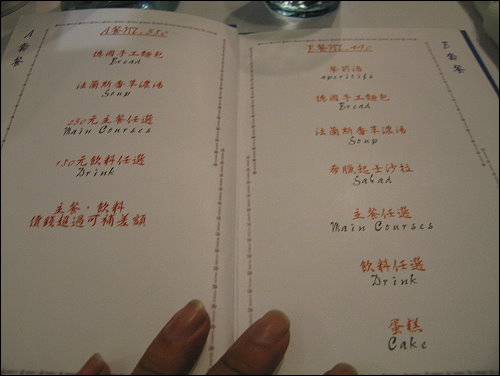 A套餐
A餐NT.350
德國手工麵包
Bread
法蘭斯香草濃湯
Soup
250元主餐任選
Main Courses
150元飲料任選
Drink
主餐、飲料
價錢超過可補差額
E套餐
德國手工麵包
Bread
法蘭斯香草濃湯
Soup
希臘起士沙拉
Salad
主餐任選
Main Courses
飲料任選
Drink
蛋糕
Cake